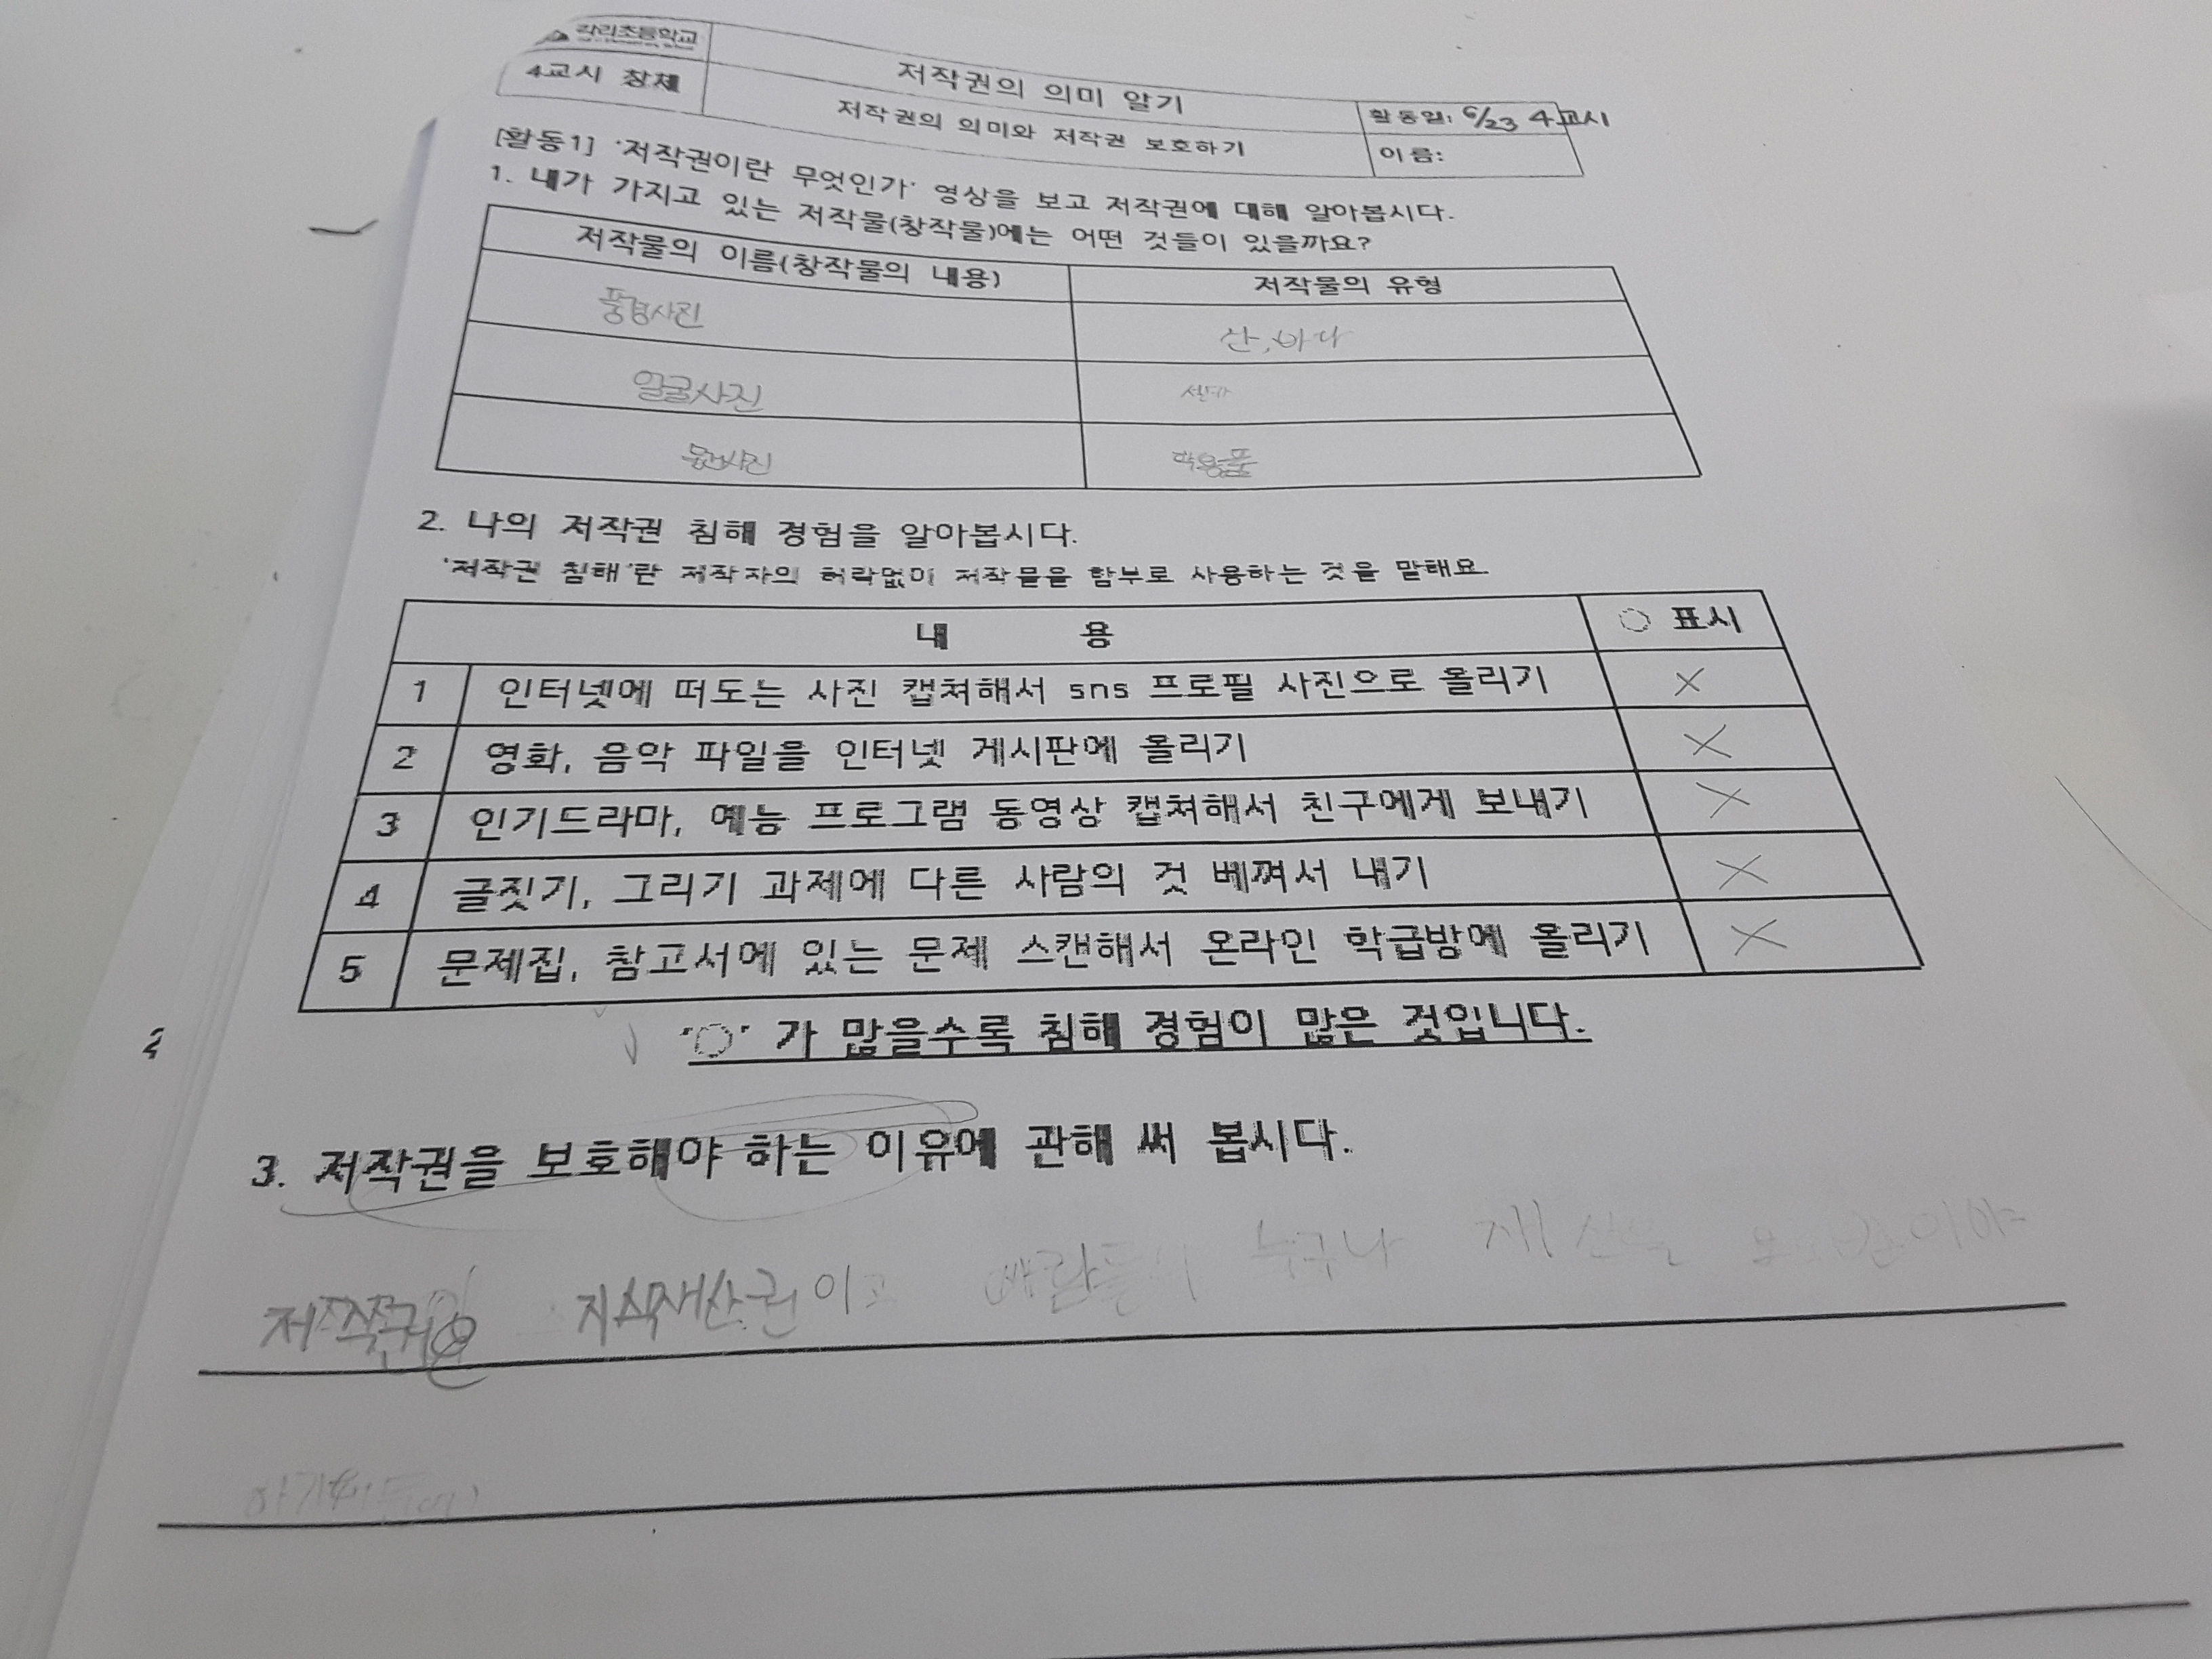 각리초등학교
저작권의 의미 알기
4교시 창체
저작권의 의미와 저작권 보호하기
활동일: 6/23 4교시
이름:
[활동1] '저작권이란 무엇인가' 영상을 보고 저작권에 대해 알아봅시다.
1. 내가 가지고 있는 저작물(창작물)에는 어떤 것들이 있을까요?
저작물의 이름(창작물의 내용) 저작물의 유형
풍경사진 산, 바다
얼굴사진
물건사진 학용품
2. 나의 저작권 침해 경험을 알아봅시다.
'저작권 침해'란 저작자의 허락없이 저작물을 함부로 사용하는 것을 말해요.
내 용 ○ 표시
1 인터넷에 떠도는 사진 캡쳐해서 sns 프로필 사진으로 올리기 X
2 영화, 음악 파일을 인터넷 게시판에 올리기 X
3 인기드라마, 예능 프로그램 동영상 캡쳐해서 친구에게 보내기 X
4 글짓기, 그리기 과제에 다른 사람의 것 베껴서 내기 X
5 문제집, 참고서에 있는 문제 스캔해서 온라인 학급방에 올리기 X
'○' 가 많을수록 침해 경험이 많은 것입니다.
3. 저작권을 보호해야 하는 이유에 관해 써 봅시다.
지식재산권이고 누구나